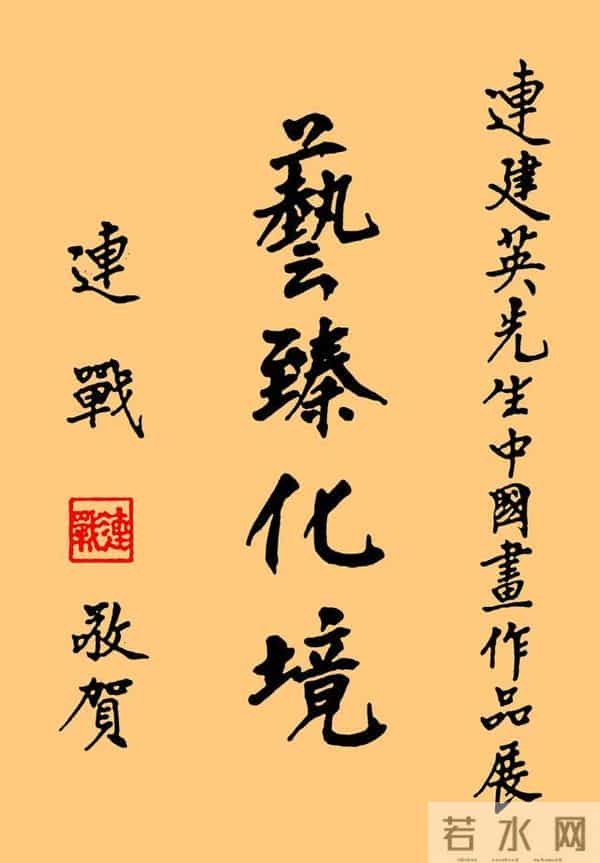 連建英先生中國畫作品展
藝臻化境
連戰
連戰
敬賀
若水网